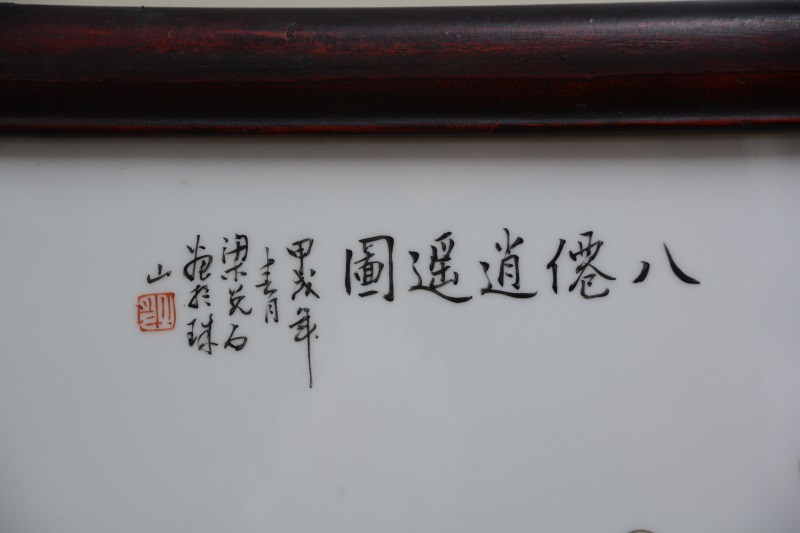 八僊逍遥圖
甲戌年
十春月
梁兑石
畫於珠
山